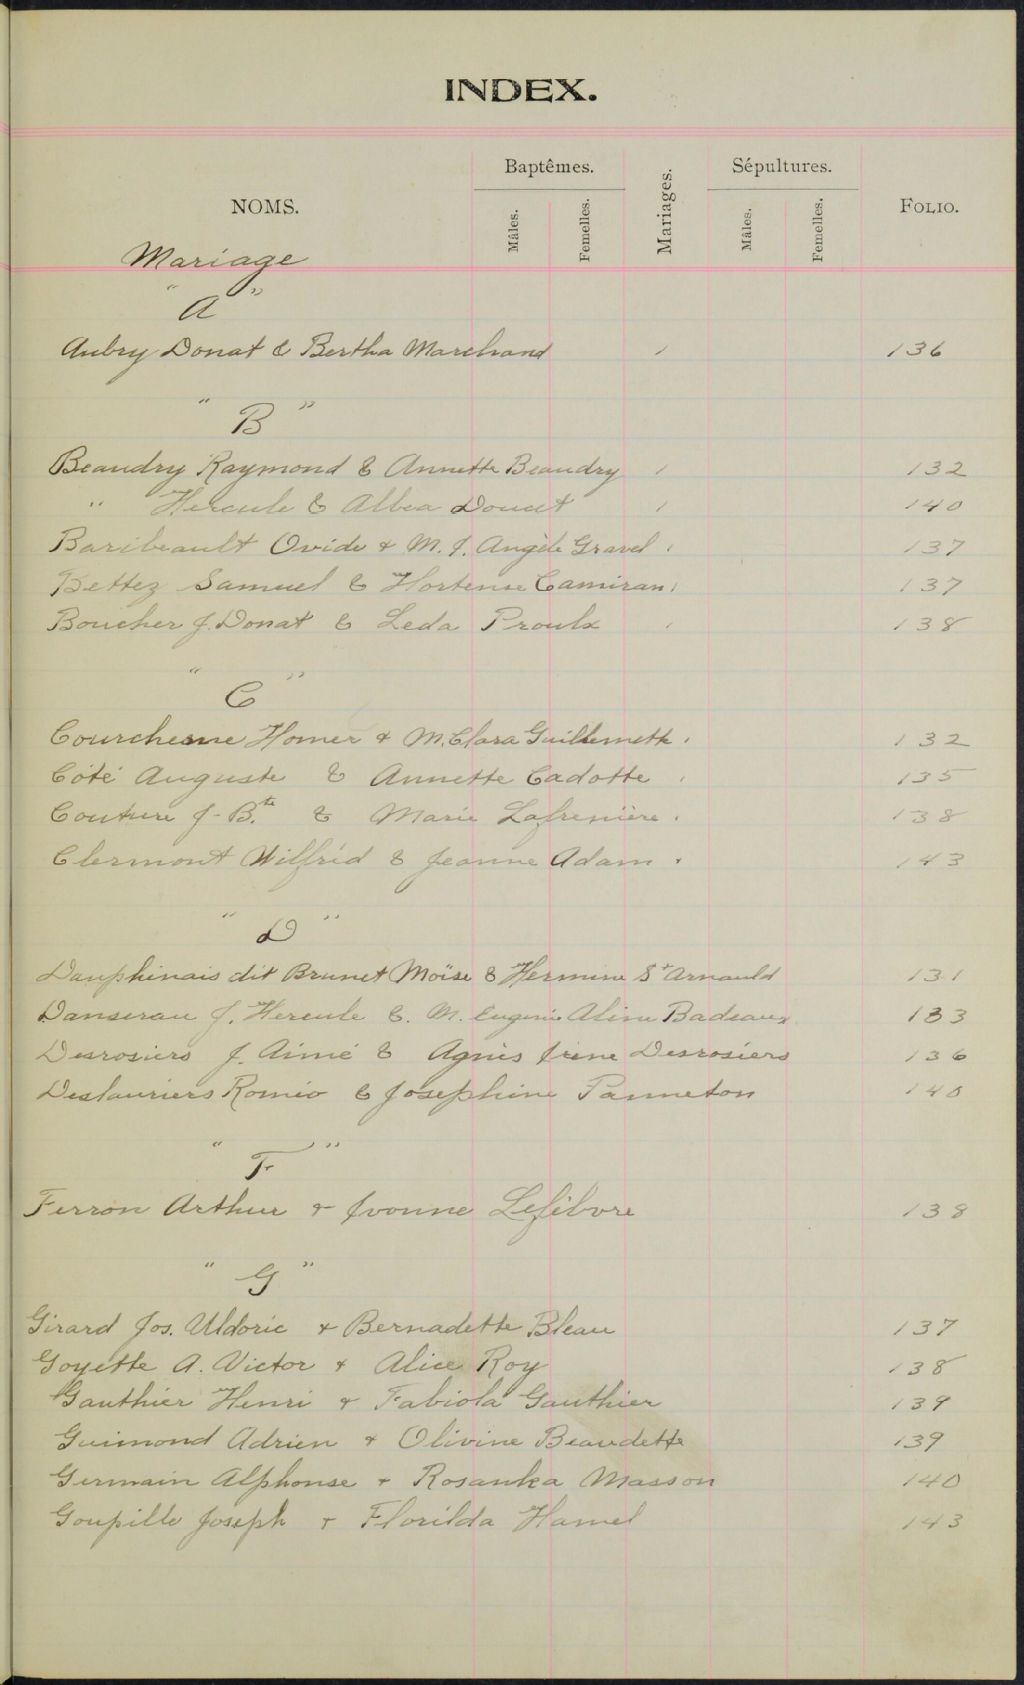 INDEX.
NOMS. Baptêmes. Mâles. Femelles. Mariages. Sépultures. Mâles. Femelles. FOLIO.
Mariage
"A"
Aubry Donat & Bertha Marchand 1 136
"B"
Beaudry Raymond & Annette Beaudry 1 132
" Hercule & Albea Doucet 1 140
Baribeault Ovide + M. J. Angèle Gravel 137
Bettez Samuel & Hortense Camiran 137
Boucher J. Donat & Leda Proulx 138
"C"
Courchesne Homer + M. Clara Guillemette 132
Côté Auguste & Annette Cadotte 135
Couture J-B.te & Marie Lafrenière 138
Clermont Wilfrid & Jeanne Adam 143
"D"
Dauphinais dit Brunet Moïse & Hermine St Arnauld 131
Danserau J. Hercule & M. Eugenie Aline Badeaux 133
Desrosiers J. Aimé & Agnès Irène Desrosiers 136
Deslauriers Roméo & Josephine Panneton 140
"F"
Ferron Arthur + Ivonne Lefebvre 138
"G"
Girard Jos. Uldoric + Bernadette Bleau 137
Goyette A. Victor + Alice Roy 138
Gauthier Henri + Fabiola Gauthier 139
Guimond Adrien + Olivine Beaudette 139
Germain Alphonse + Rosanka Masson 140
Goupille Joseph + Florilda Hamel 143